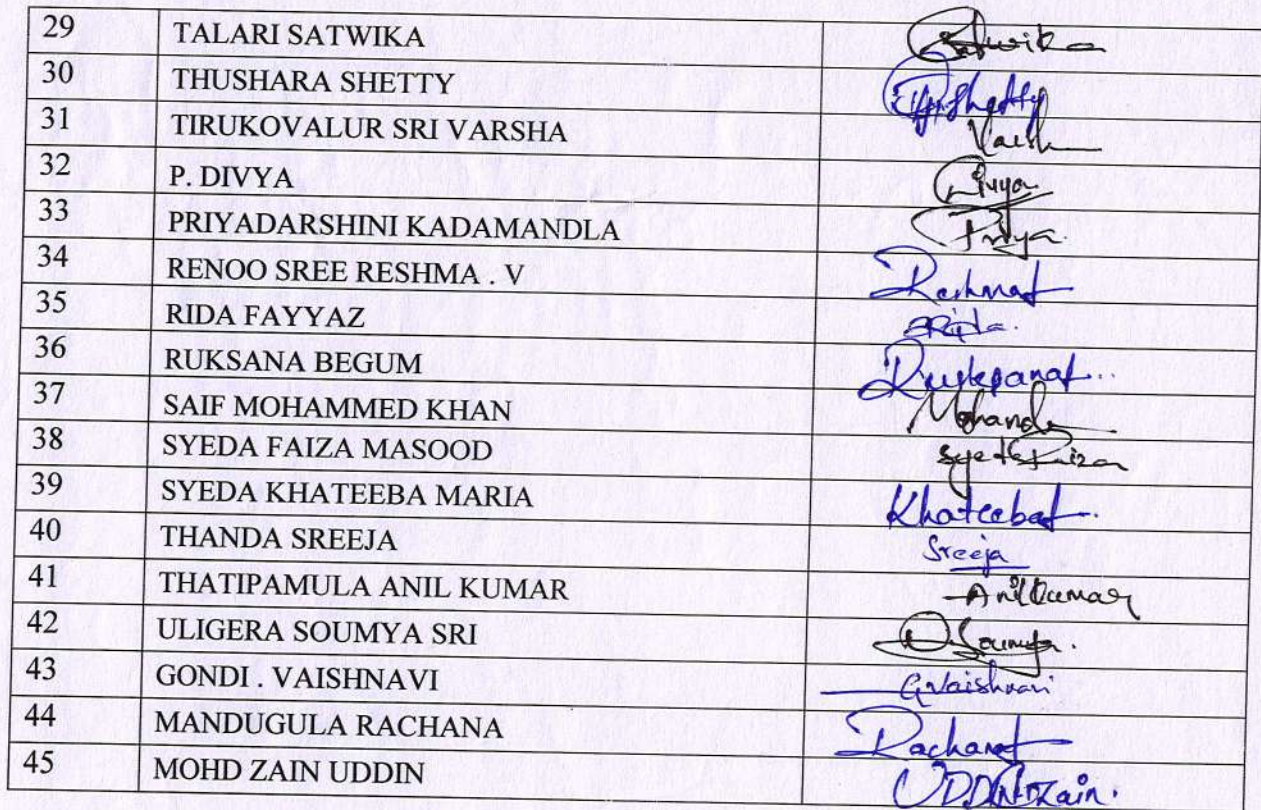 29 TALARI SATWIKA Satwika
30 THUSHARA SHETTY
31 TIRUKOVALUR SRI VARSHA
32 P. DIVYA Divya
33 PRIYADARSHINI KADAMANDLA Priya.
34 RENOO SREE RESHMA . V
35 RIDA FAYYAZ Rida.
36 RUKSANA BEGUM
37 SAIF MOHAMMED KHAN
38 SYEDA FAIZA MASOOD
39 SYEDA KHATEEBA MARIA
40 THANDA SREEJA Sreeja
41 THATIPAMULA ANIL KUMAR Anilkumar
42 ULIGERA SOUMYA SRI Soumya.
43 GONDI . VAISHNAVI G.Vaishnavi
44 MANDUGULA RACHANA
45 MOHD ZAIN UDDIN